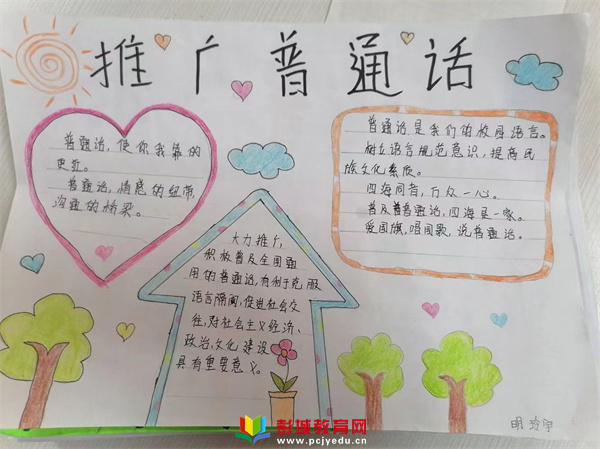 推广普通话
普通话,使你我靠的
更近。
普通话,情感的纽带,
沟通的桥梁。
普通话是我们的校园语言。
树立语言规范意识,提高民
族文化素质。
四海同音,万众一心。
普及普通话,四海是一家。
爱国旗,唱国歌,说普通话。
大力推广,
积极普及全国通
用的普通话,有利于克服
语言隔阂,促进社会交
往,对社会主义经济、
政治,文化建设
具有重要意义。
彭城教育网
www.pcjyedu.cn